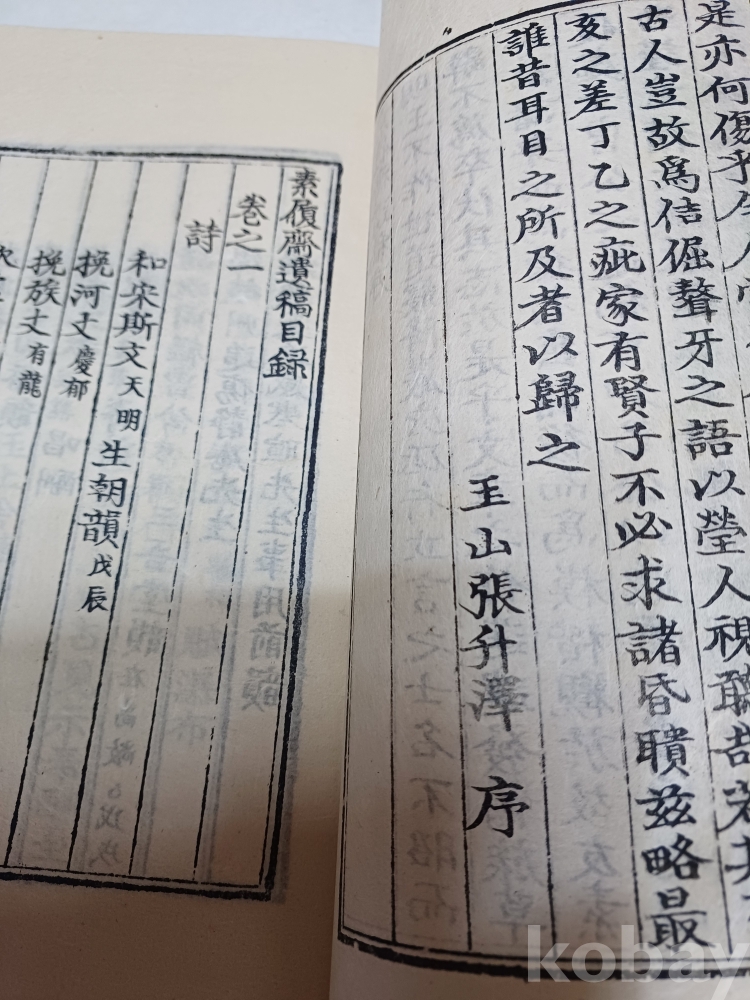 是亦何傷乎
古人豈故爲佶倔聱牙之語以瑩人視聽哉若其
亥之差丁乙之疵家有賢子不必求諸昏聵玆略最
誰昔耳目之所及者以歸之
玉山張升澤序
素履齋遺稿目録
卷之一
詩
和朶斯文天明生朝韻戊辰
挽河丈慶郁
挽族丈有龍
kobay